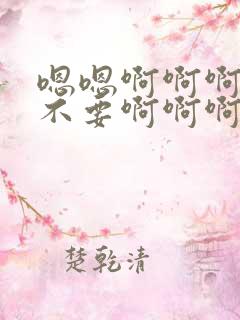 嗯嗯啊啊啊
不要啊啊啊
楚乾清